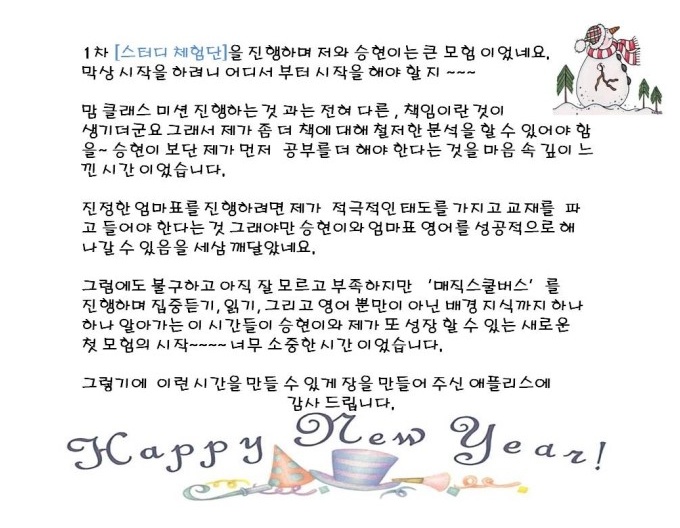 1차 [스터디 체험단]을 진행하며 저와 승현이는 큰 모험 이었네요.
막상 시작을 하려니 어디서 부터 시작을 해야 할 지 ~~~
맘 클래스 미션 진행하는 것 과는 전혀 다른 , 책임이란 것이
생기더군요 그래서 제가 좀 더 책에 대해 철저한 분석을 할 수 있어야 함
을~ 승현이 보단 제가 먼저 공부를 더 해야 한다는 것을 마음 속 깊이 느
낀 시간 이었습니다.
진정한 엄마표를 진행하려면 제가 적극적인 태도를 가지고 교재를 파
고 들어야 한다는 것 그래야만 승현이와 엄마표 영어를 성공적으로 해
나갈 수 있음을 세삼 깨달았네요.
그럼에도 불구하고 아직 잘 모르고 부족하지만 ‘매직스쿨버스’ 를
진행하며 집중듣기, 읽기, 그리고 영어 뿐만이 아닌 배경 지식까지 하나
하나 알아가는 이 시간들이 승현이와 제가 또 성장 할 수 있는 새로운
첫 모험의 시작~~~~ 너무 소중한 시간 이었습니다.
그렇기에 이런 시간을 만들 수 있게 장을 만들어 주신 애플리스에
감사 드립니다.
Happy New Year!